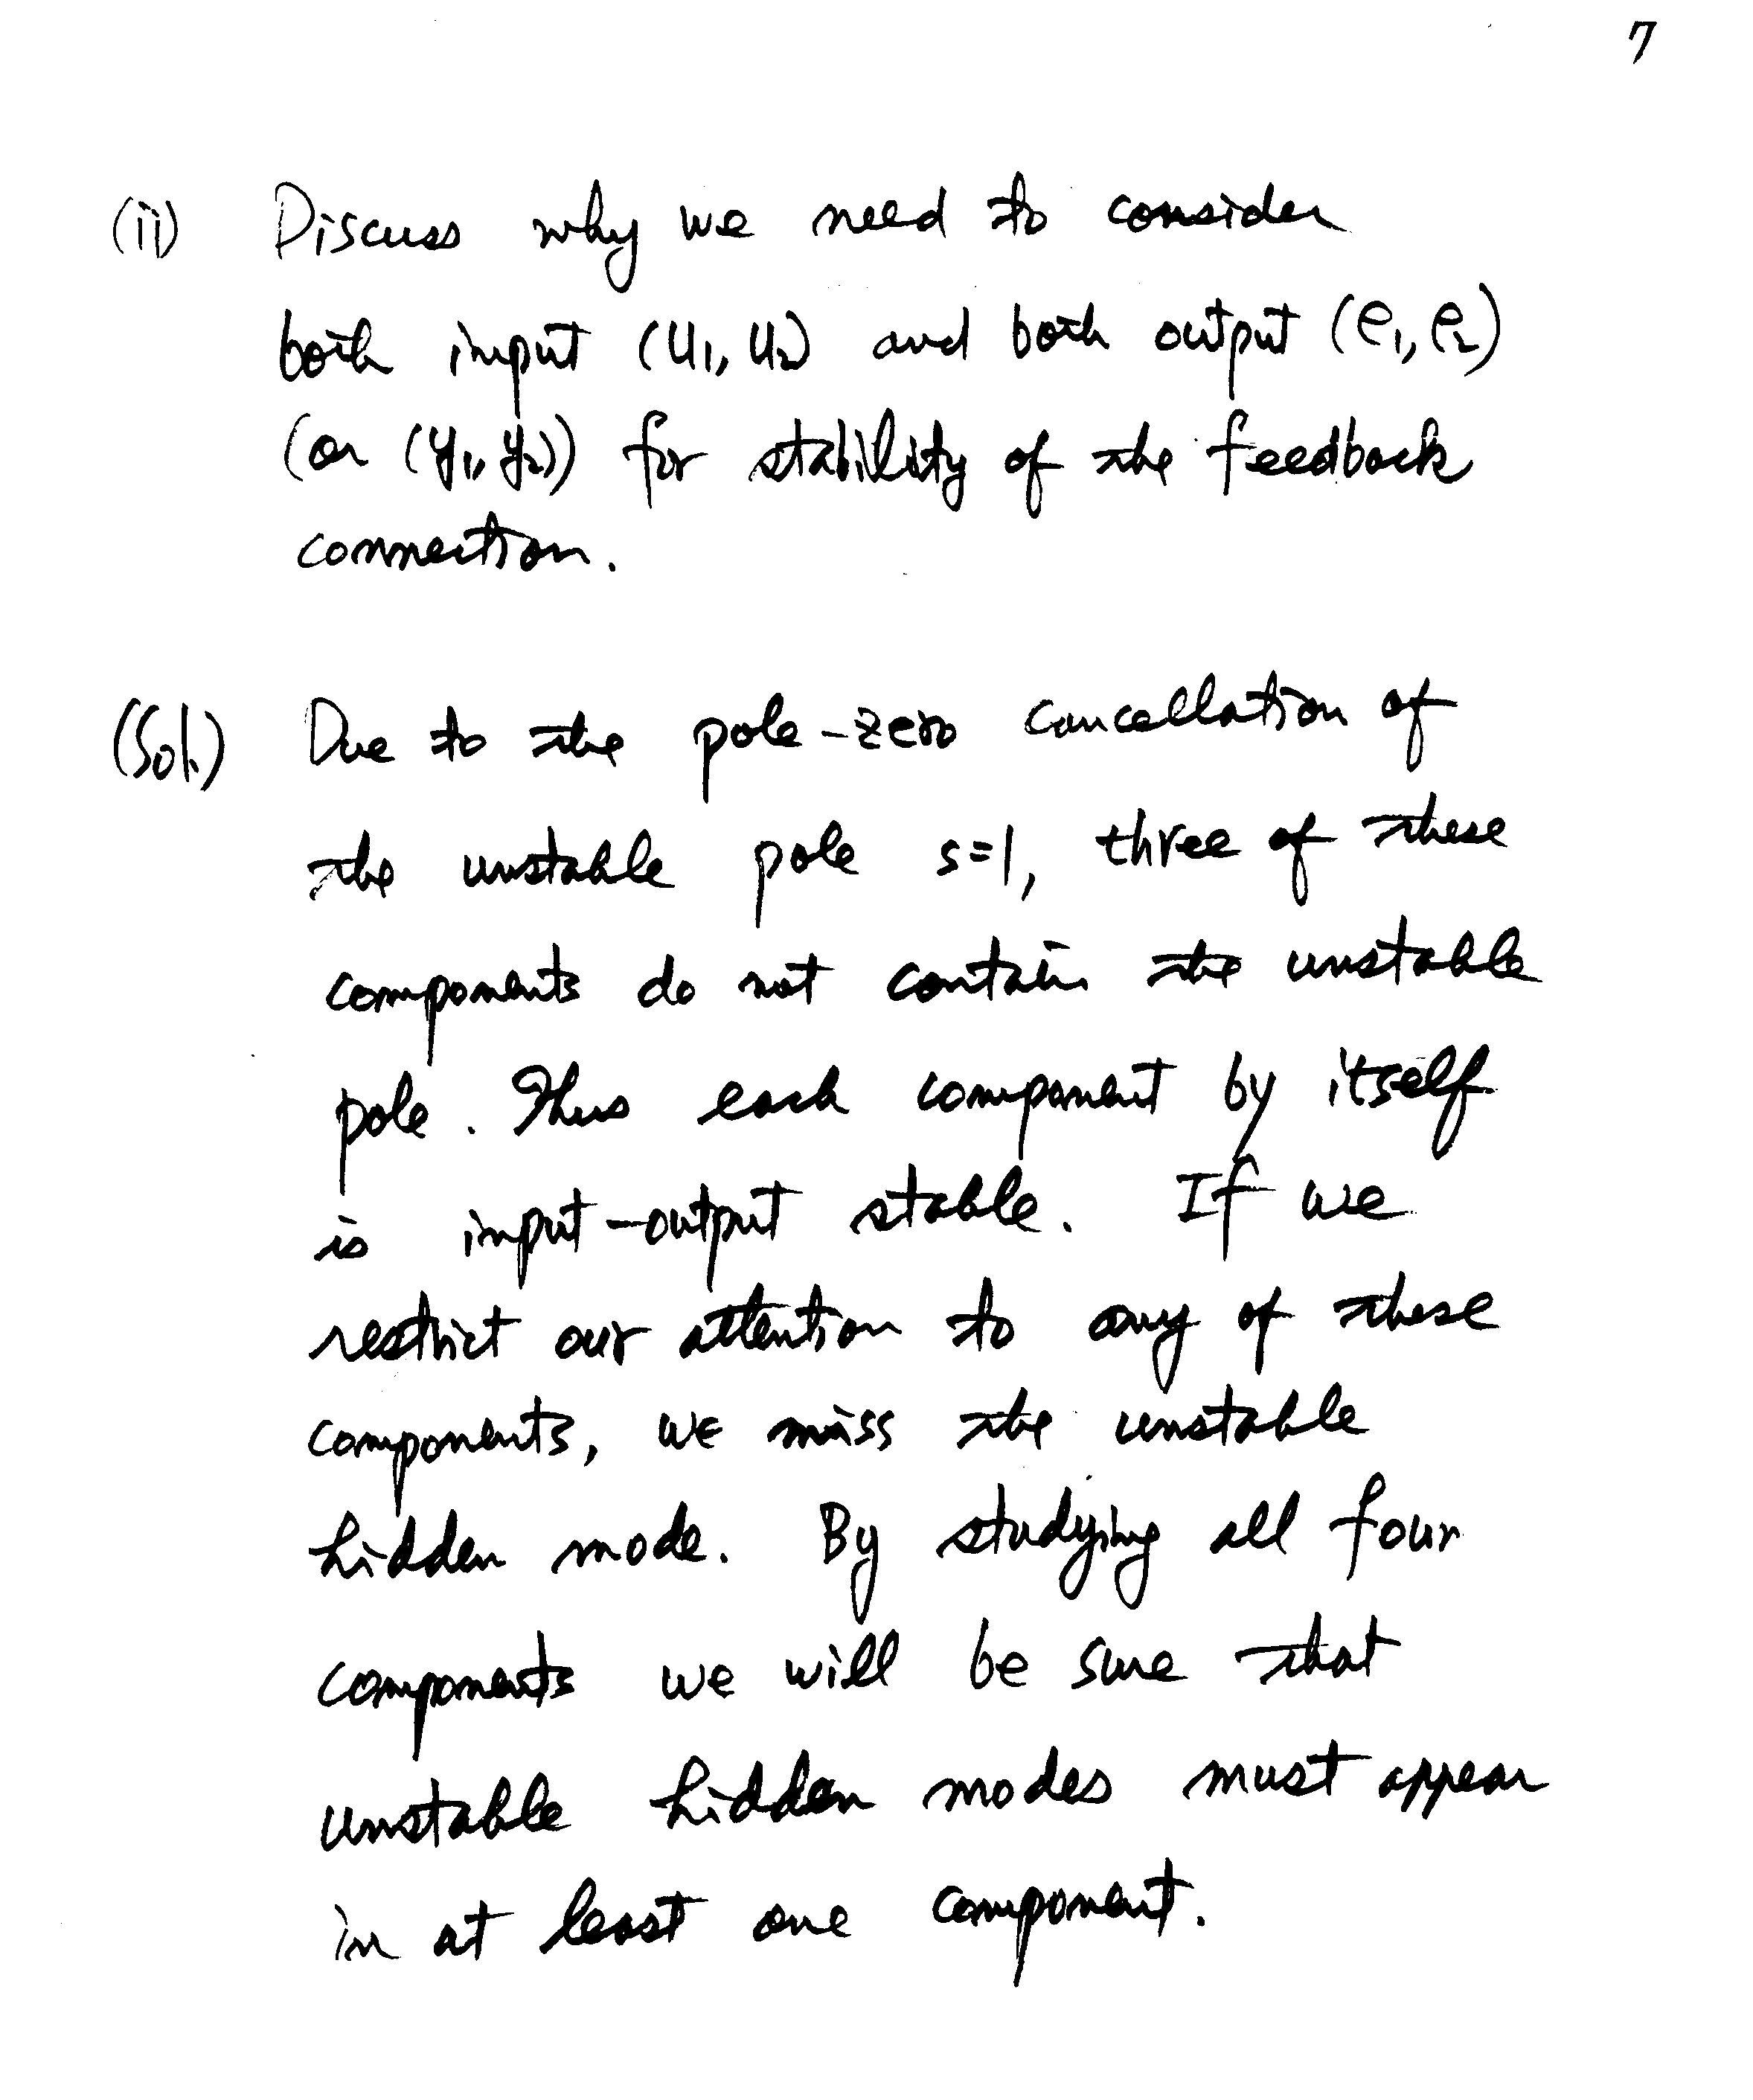 7
(ii) Discuss why we need to consider
both input (u₁, u₂) and both output (e₁, e₂)
(or (y₁, y₂)) for stability of the feedback
connection.
(Sol.) Due to the pole-zero cancellation of
the unstable pole s=1, three of these
components do not contain the unstable
pole. Thus each component by itself
is input-output stable. If we
restrict our attention to any of these
components, we miss the unstable
hidden mode. By studying all four
components we will be sure that
unstable hidden modes must appear
in at least one component.